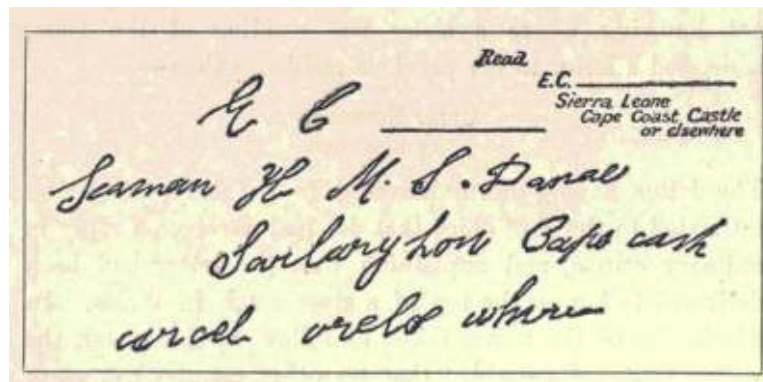 Read
E.C.
Sierra Leone
Cape Coast Castle
or elsewhere
E C
Seaman H M. S. Danae
Sarlaryhon Caps cash
carcel orels where